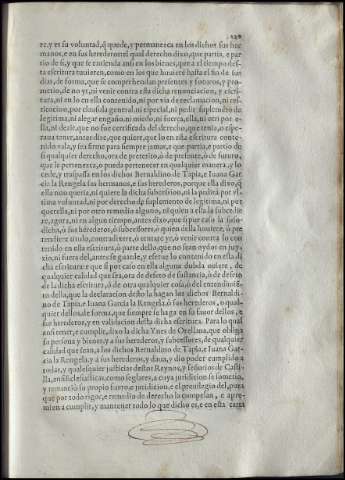 re, y es su voluntad, q̃ quede, y permanezca en los dichos sus her
manos, e en sus herederos el qual derecho dixo, que partia, e par
tio de si, y que se entienda ansi en los bienes, que a el tiempo desta
escritura tuuieren, como en los que huuiere hasta el fin de sus
dias, de forma, que se comprehendan presentes y futuros, y pro
metio, de no yr, ni venir contra esta dicha renunciacion, y escri
tura, ni en lo en ella contenido, ni por via de reclamacion, ni res
titucion, por clausula general ni especial, ni pedir suplemento de
legitima, ni alegar engaño, ni miedo, ni fuerça, ella, ni otri por e-
lla, ni dezir, que no fue certificada del derecho, que tenia, o espe
raua tener, antes dixo, que quiere, que lo en ella escritura conte
nido vala, y sea firme para siempre jamas, e que partia, e partio de
si qualquier derecho, ora de preterito, o de presente, ò de futuro,
que le pertenezca, o pueda pertenecer en qualquier manera, y lo
cede, y traspassa en los dichos Bernaldino de Tapia, e Iuana Gar
cia la Rengela sus hermanos, e sus herederos, porque ella dixo, q̃
ella non queria, ni quiere la dicha subcession, ni la pedirà por vl
tima voluntad, ni por derecho de suplemento de legitima, ni por
querella, ni por otro remedio alguno,
re, agora, ni en algun tiempo, antes dixo, que si por caso la suso-
dicha, ò sus herederos, ò subcessores, ò quien della houiere, ò pre
tendiere titulo, contradixere, ò tentare yr, ò venir contra lo con
tenido en ella escritura, ò parte dello, que no sean oydos en juy
zio, ni fuera del, antes se guarde, y efetue lo contenido en ella di
cha escritura: e que si por caso en ella alguna dubda ouiere, de
qualquier calidad que sea, ora de defeto de sustancia, ò de defeto
de la dicha escritura, ò de otra qualquier cosa, ò del entendimiẽ
to della, que la declaracion dello la hagan los dichos Bernaldi
no de Tapia, e Iuana Garcia la Rengela, ò sus herederos, o qual
quier dellos, de forma, que siempre se haga en su fauor dellos, e
sus herederos, y en validacion desta dicha escritura. Para lo qual
ansi tener, e cumplir, dixo la dicha Ynes de Orellana, que obliga
su persona y bienes, y a sus herederos, y subcessores, de qualquier
calidad que sean, a los dichos Bernaldino de Tapia, e Iuana Gar
cia la Rengela, y a sus herederos, y dixo, y dio poder cumplido a
todas, y qualesquier justicias destos Reynos, y señorios de Casti
lla, ansi eclesiasticas, como seglares, a cuya juridicion se sometio,
y renunciò su propio fuero, e juridicion, e el preuilegio del, para
que por todo rigor, e remedio de derecho la compelan, e apre
mien a cumplir, y mantener todo lo que dicho es, e en esta carta